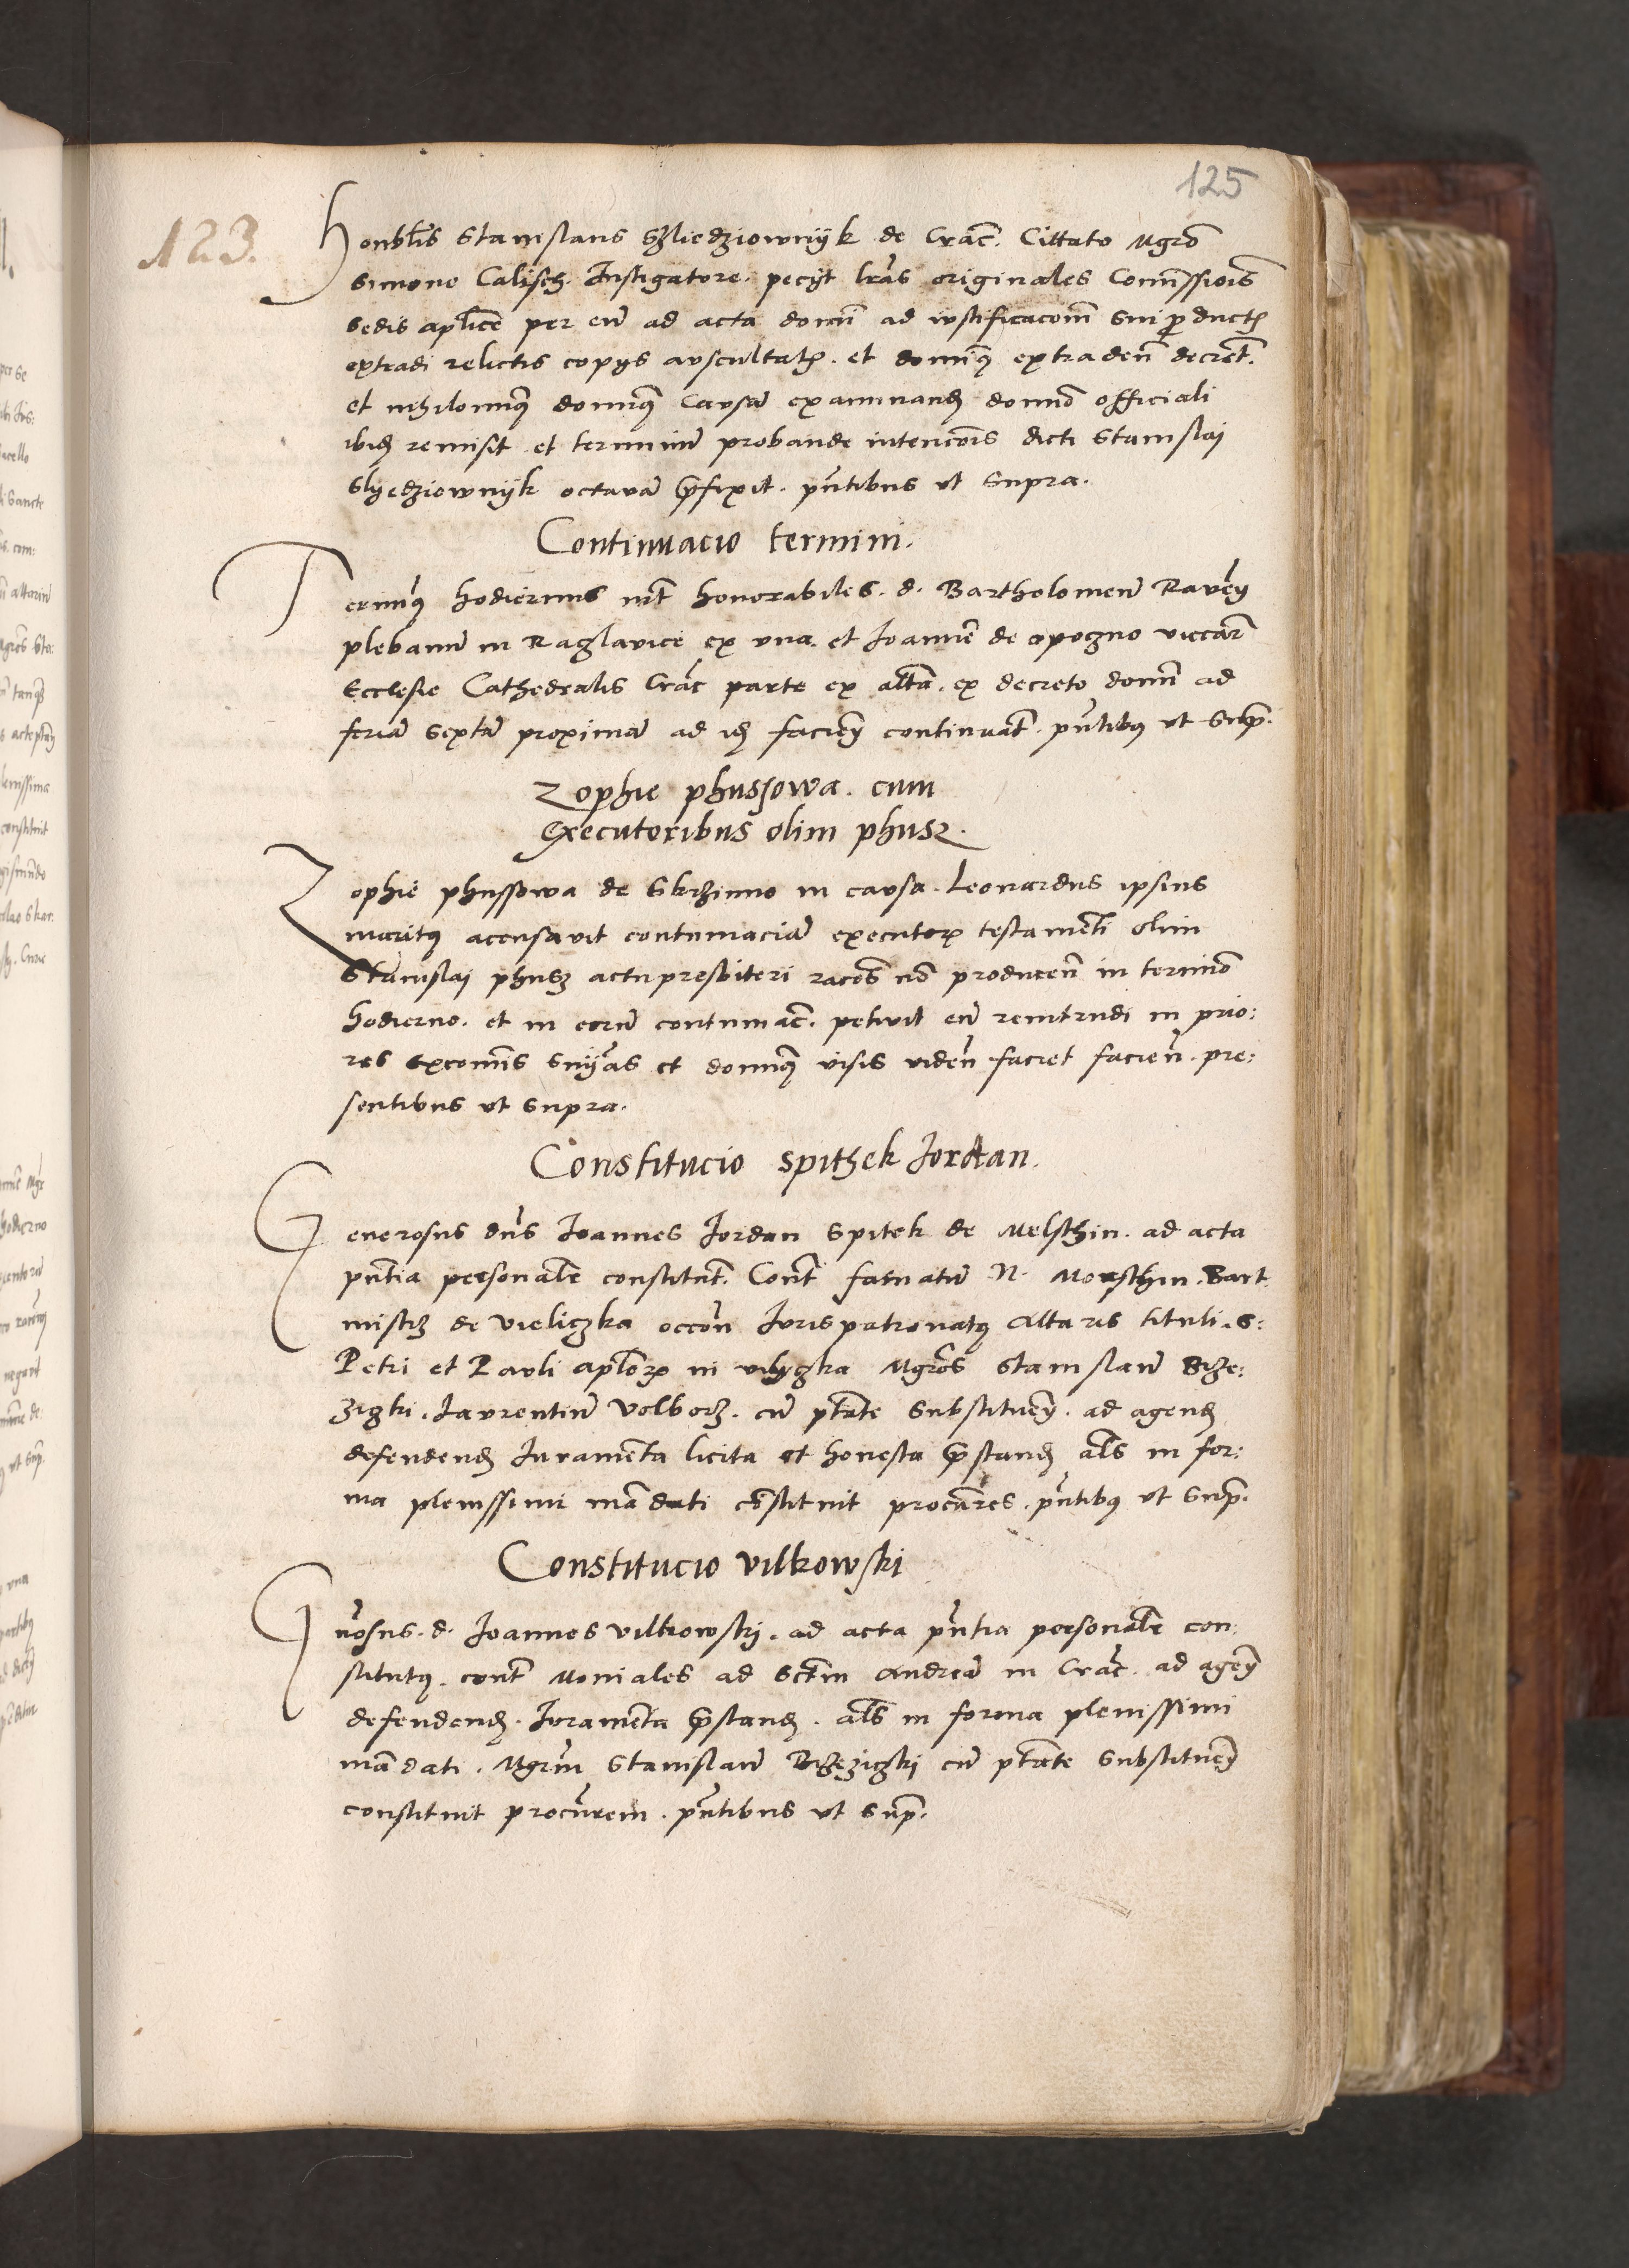 125
123.
Honblis Stanislaus Szliedziownyk de Crac. Cittato Mgro
Simone Calisch. Instigatore. pecyt lras originales Comissiois
sedis aplice per eu ad acta domi ad iustificacom sui product
extradi relictis copys auscultat. et dominus extraden decret.
et nihilominus dominus causam examinand domino officiali
ibid remisit et terminu probande intencois dicti Stanislaj
Slyedziownyk octava prefixit. pntibus ut supra.
Continuacio termini.
Terminus hodiernus int honorabiles. d. Bartholomeu
plebanu in Raglavice ex una. et Joanne de opoczno viccar
Ecclesie Cathedralis Crac parte ex alta. ex decreto domi ad
feria sexta proxima ad id facien continuat. pntibus ut sup.
Zophie phussowa. cum
Executoribus olim phusz.
Zophie phussowa de Skrzinno in causa. Leonardus ipsius
maritus accusavit contumacia executor testamenti olim
Stanislaj phusz actu presbiteri racoes no producen in termino
hodierno. et in eoru contumac. petivit eu reintrudi in prio:
res excomis snias et dominus visis viden faciet facien. pre:
sentibus ut supra.
Constitucio spithek Jordan.
Generosus dns Joannes Jordan Spitek de Melsthin. ad acta
pntia personale constitut. Cont famatu N. Morsthin. Bart
mistrz de Vieliczka occon Jurispatronatus Altaris tituli. S:
Petri et Pauli aplor in vilyczka Mgros Stanislau Brze:
ziczki. Laurentiu Volborz. cu ptate substituen. ad agend
defendend Juramenta licita et honesta prestand als in for:
ma plenissimi madati costituit procures. pntibus ut sup.
Constitucio vilkowski
Gnosus. d. Joannes vilkowskj. ad acta pntia personale con:
stitutus. cont Moniales ad Sctm Andrea in Crac. ad agen
defendend. Juramenta prestand. als in forma plenissimi
madati. Mgrm Stanislau Brzeziczkj cu ptate substituen
constituit procurem. pntibus ut sup.